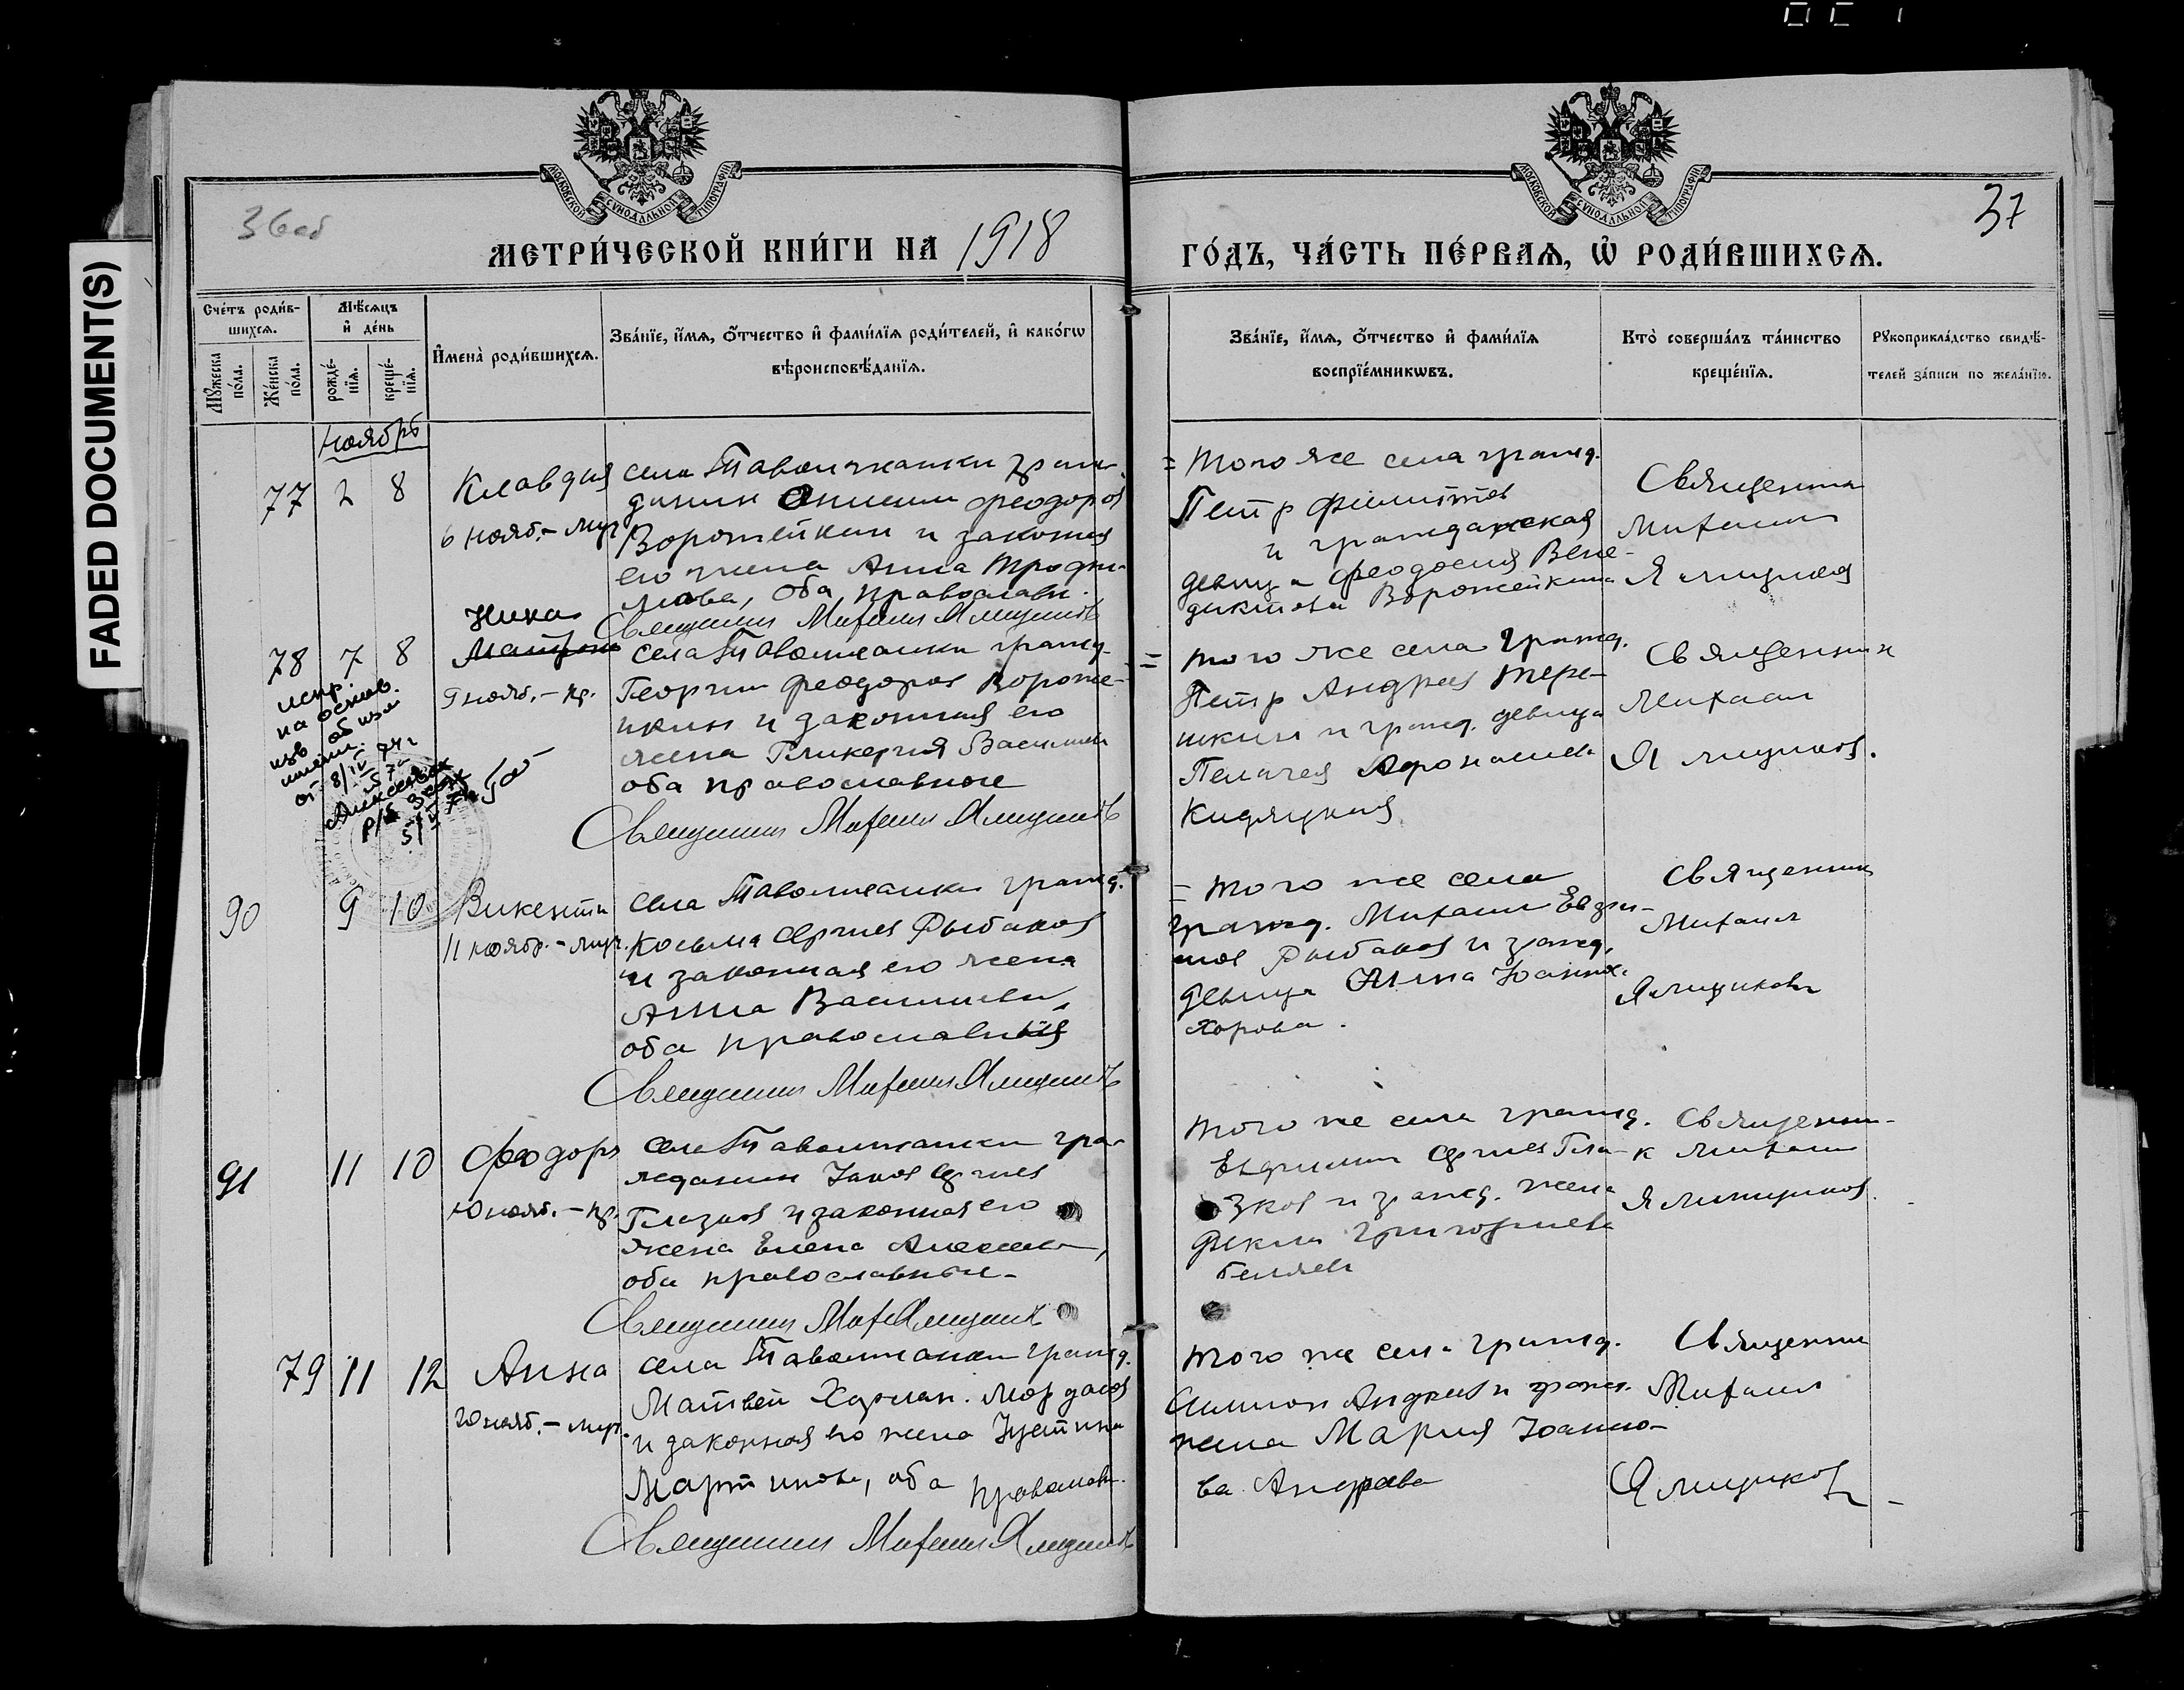 FADED DOCUMENT(S)
36об
37
МОСКОВСКОЙ СѴНОДАЛЬНОЙ ТИПОГРАФІИ
МЕТРИ́ЧЕСКОЙ КНИ́ГИ НА 1918
МОСКОВСКОЙ СѴНОДАЛЬНОЙ ТИПОГРАФІИ
ГО́ДЪ, ЧА́СТЬ ПЕ́РВАѦ, Ѡ҆ РОДИ́ВШИХСѦ.
Сче́тъ роди́в-
шихсѧ.
Мꙋ́жеска по́ла.
Же́нска по́ла.
Мѣ́сѧцъ
и҆ де́нь
рожде́-
нїѧ.
креще́-
нїѧ.
И҆мена̀ роди́вшихсѧ.
Зва́нїе, и҆́мѧ, ѻ҆́тчество и҆ фами́лїѧ роди́телей, и҆ како́гѡ
вѣроисповѣ́данїѧ.
Зва́нїе, и҆́мѧ, ѻ҆́тчество и҆ фами́лїѧ
воспрїе́мникѡвъ.
Кто̀ соверша́лъ та́инство
креще́нїѧ.
Рꙋкоприкла́дство свидѣ́-
телей за́писи по жела́нїю.
ноябрь
77 2 8 Клавдия
6 нояб.- муч
села Таволжанки граж-
данин Феодоров
Ворожейкин и законная
его жена Анна Трофи-
мова, оба православн.
Священник Михаил Ямщиков
= того же села гражд.
Петр Филиппов
и гражданская
девица Феодосия Вене-
диктова Ворожейкина
Священник
Михаил
Ямщиков
Ника
78 7 8 Матрона
9 нояб. - пр.
испр.
на основ.
изв об изм
имени
от 8/IV 74г
5/IV 74
села Таволжанки гражд.
Георгий Феодоров Вороже-
йкин и законная его
жена Гликерия Васильева
оба православные
Священник Михаил Ямщиков
= того же села гражд.
Петр Андреев Тере-
шкин и гражд. девица
Пелагея Афонасиева
Священник
Михаил
Ямщиков.
90 9 10 Викентий
11 ноябр. - муч.
села Таволжанки гражд.
Косьма Сергиев Рыбаков
и законная его жена
Анна Васильева,
оба православныя
Священник Михаил Ямщиков
= того же села
гражд. Михаил Евфи-
миев Рыбаков и гражд.
девица Анна Иоаннов.
Хорова.
Священник
Михаил
Ямщиковъ
91 11 10 Феодоръ
нояб. - пр.
села Таволжанки гра-
жданин Иаков Сергиев
Глазков и законная его
жена Елена Алексеева,
оба православные.
Священник Мих Ямщиков
того же села гражд.
Евфимий Сергиев Гла-
зков и гражд. жена
Фекла Григориева
Беляева
Священни-
к Михаил
Ямщиков.
79 11 12 Анна
нояб. - муч.
села Таволжанки гражд.
Матвей Харлам. Мордасов
и законная его жена Иустина
Мартинова, оба православн.
Священник Михаил Ямщиков
того же села гражд.
Симион Андреев и гражд.
жена Мария Иоанно-
ва Андреева
Священник
Михаил
Ямщиков